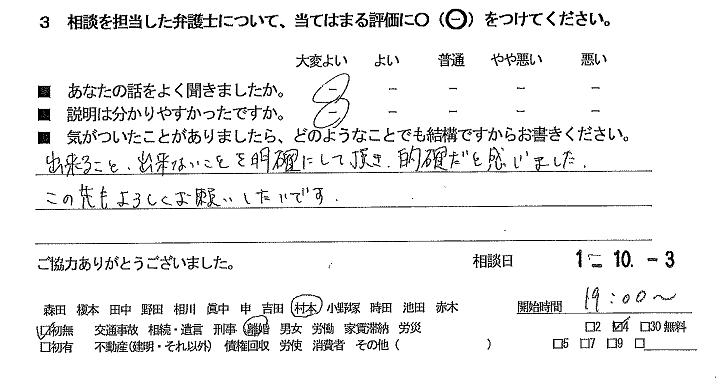 3 相談を担当した弁護士について、当てはまる評価に○（㊀）をつけてください。
大変よい よい 普通 やや悪い 悪い
■ あなたの話をよく聞きましたか。 － － － － －
■ 説明は分かりやすかったですか。 － － － － －
■ 気がついたことがありましたら、どのようなことでも結構ですからお書きください。
出来ること、出来ないことを明確にして頂き、的確だと感じました。
この先もよろしくお願いしたいです。
ご協力ありがとうございました。 相談日 10. －3
森田 榎本 田中 野田 相川 眞中 申 吉田 村本 小野塚 時田 池田 赤木 開始時間 19:00～
☑初無 交通事故 相続・遺言 刑事 離婚 男女 労働 家賃滞納 労災 □2 ☑4 □30無料
□初有 不動産(建明・それ以外) 債権回収 労使 消費者 その他（ ） □5 □7 □9 □